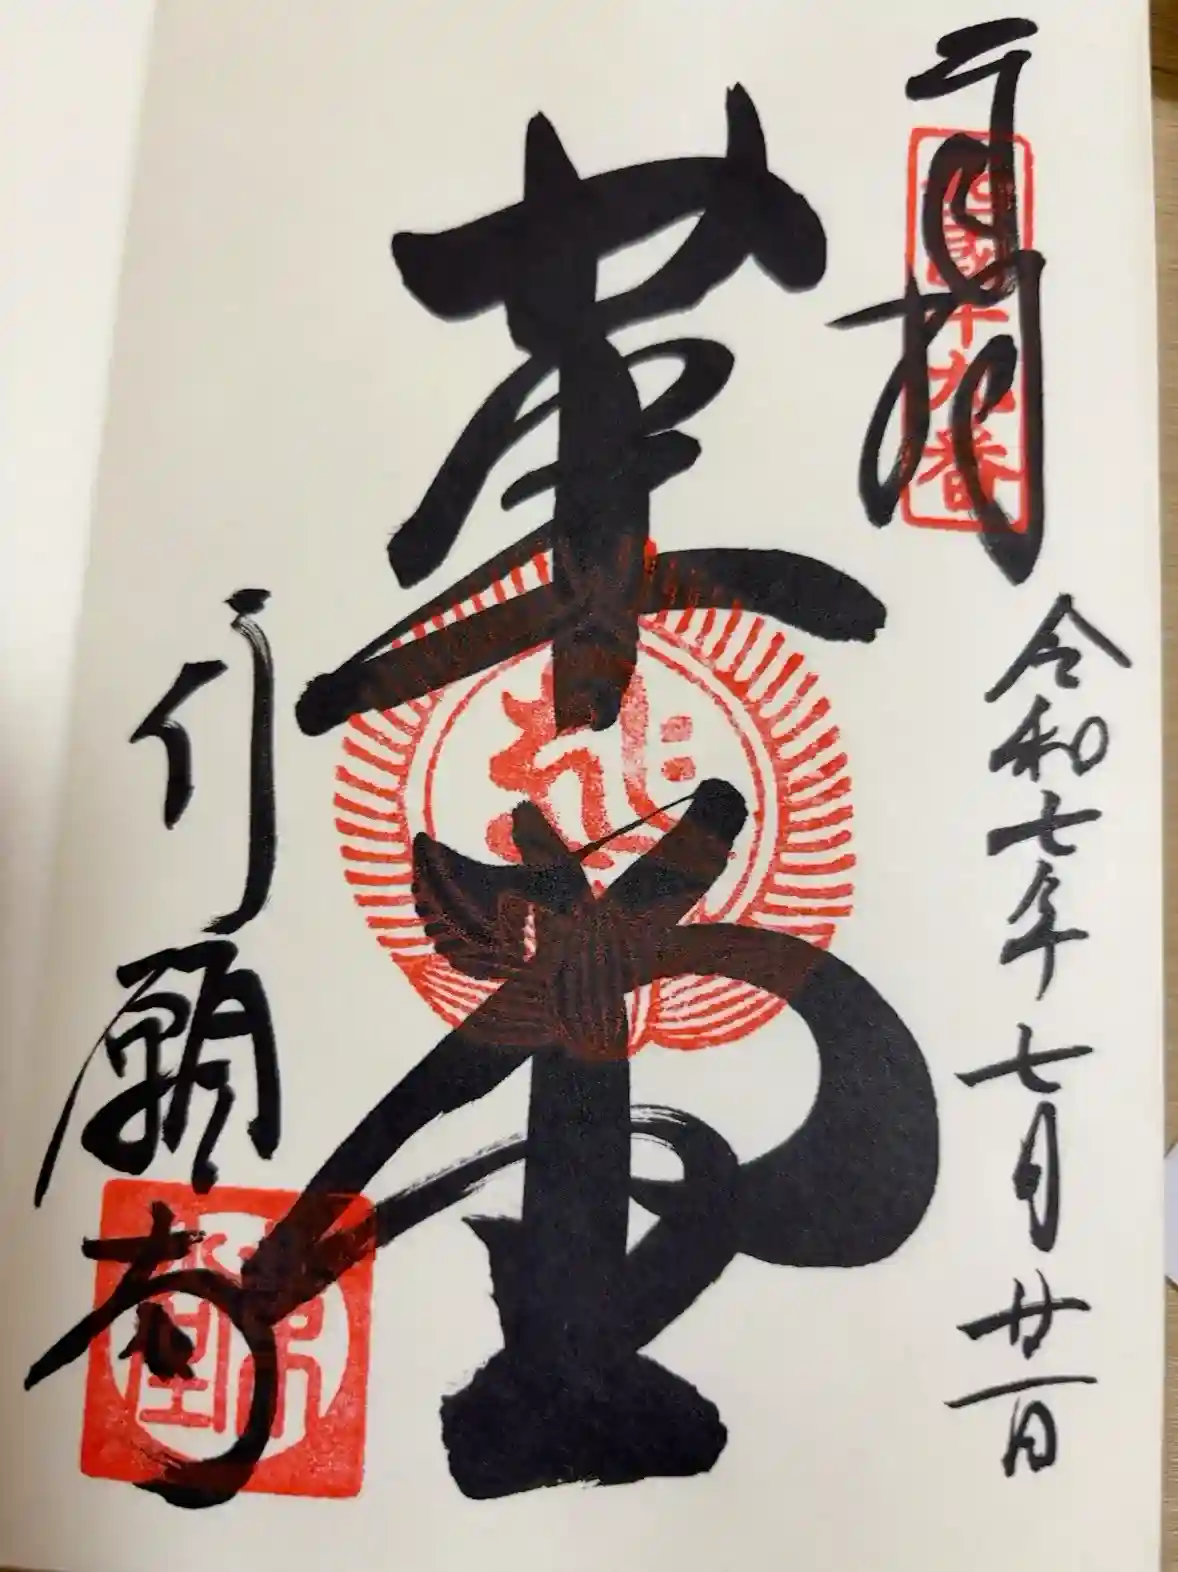 奉拝
西國十九番
令和七年七月廿一日
革堂
行願寺